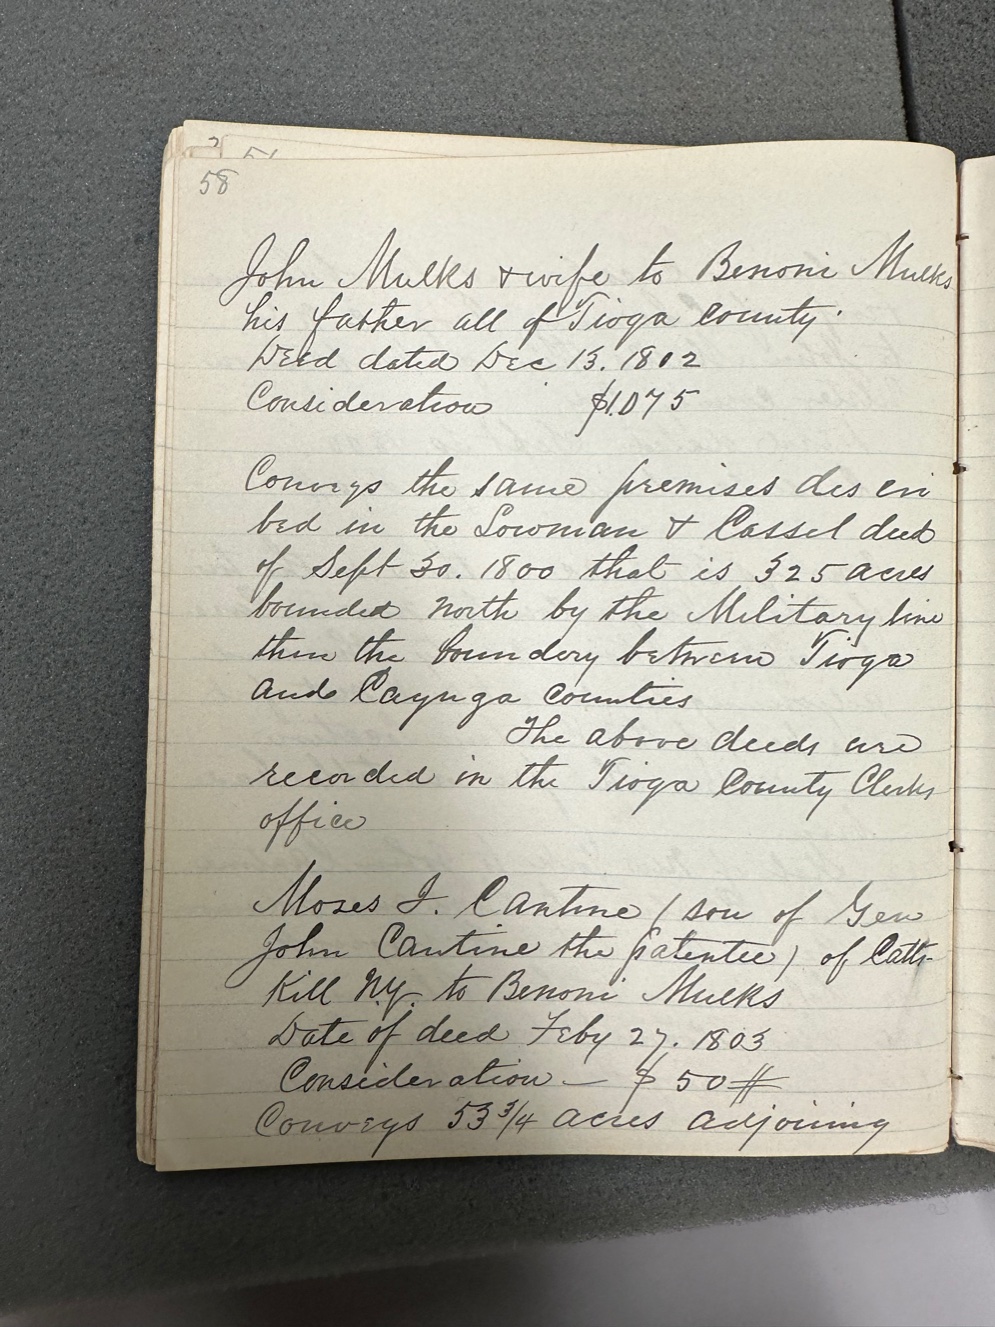 58
John Mulks & wife to Benoni Mulks
his father all of Tioga County.
Deed dated Dec 13. 1802
Consideration $1.075
Conveys the same premises des cri
bed in the Lowman & Cassel deed
of Sept 30. 1800 that is 325 acres
bounded North by the Military line
then the boundery between Tioga
and Cayuga Counties
The above deeds are
recorded in the Tioga County Clerks
office
Moses I. Cantine ( son of Gen
John Cantine the patentee ) of Catts-
Kill N.Y. to Benoni Mulks
Date of deed Feby 27. 1803
Consideration — $ 50
Conveys 53 3/4 acres adjoining